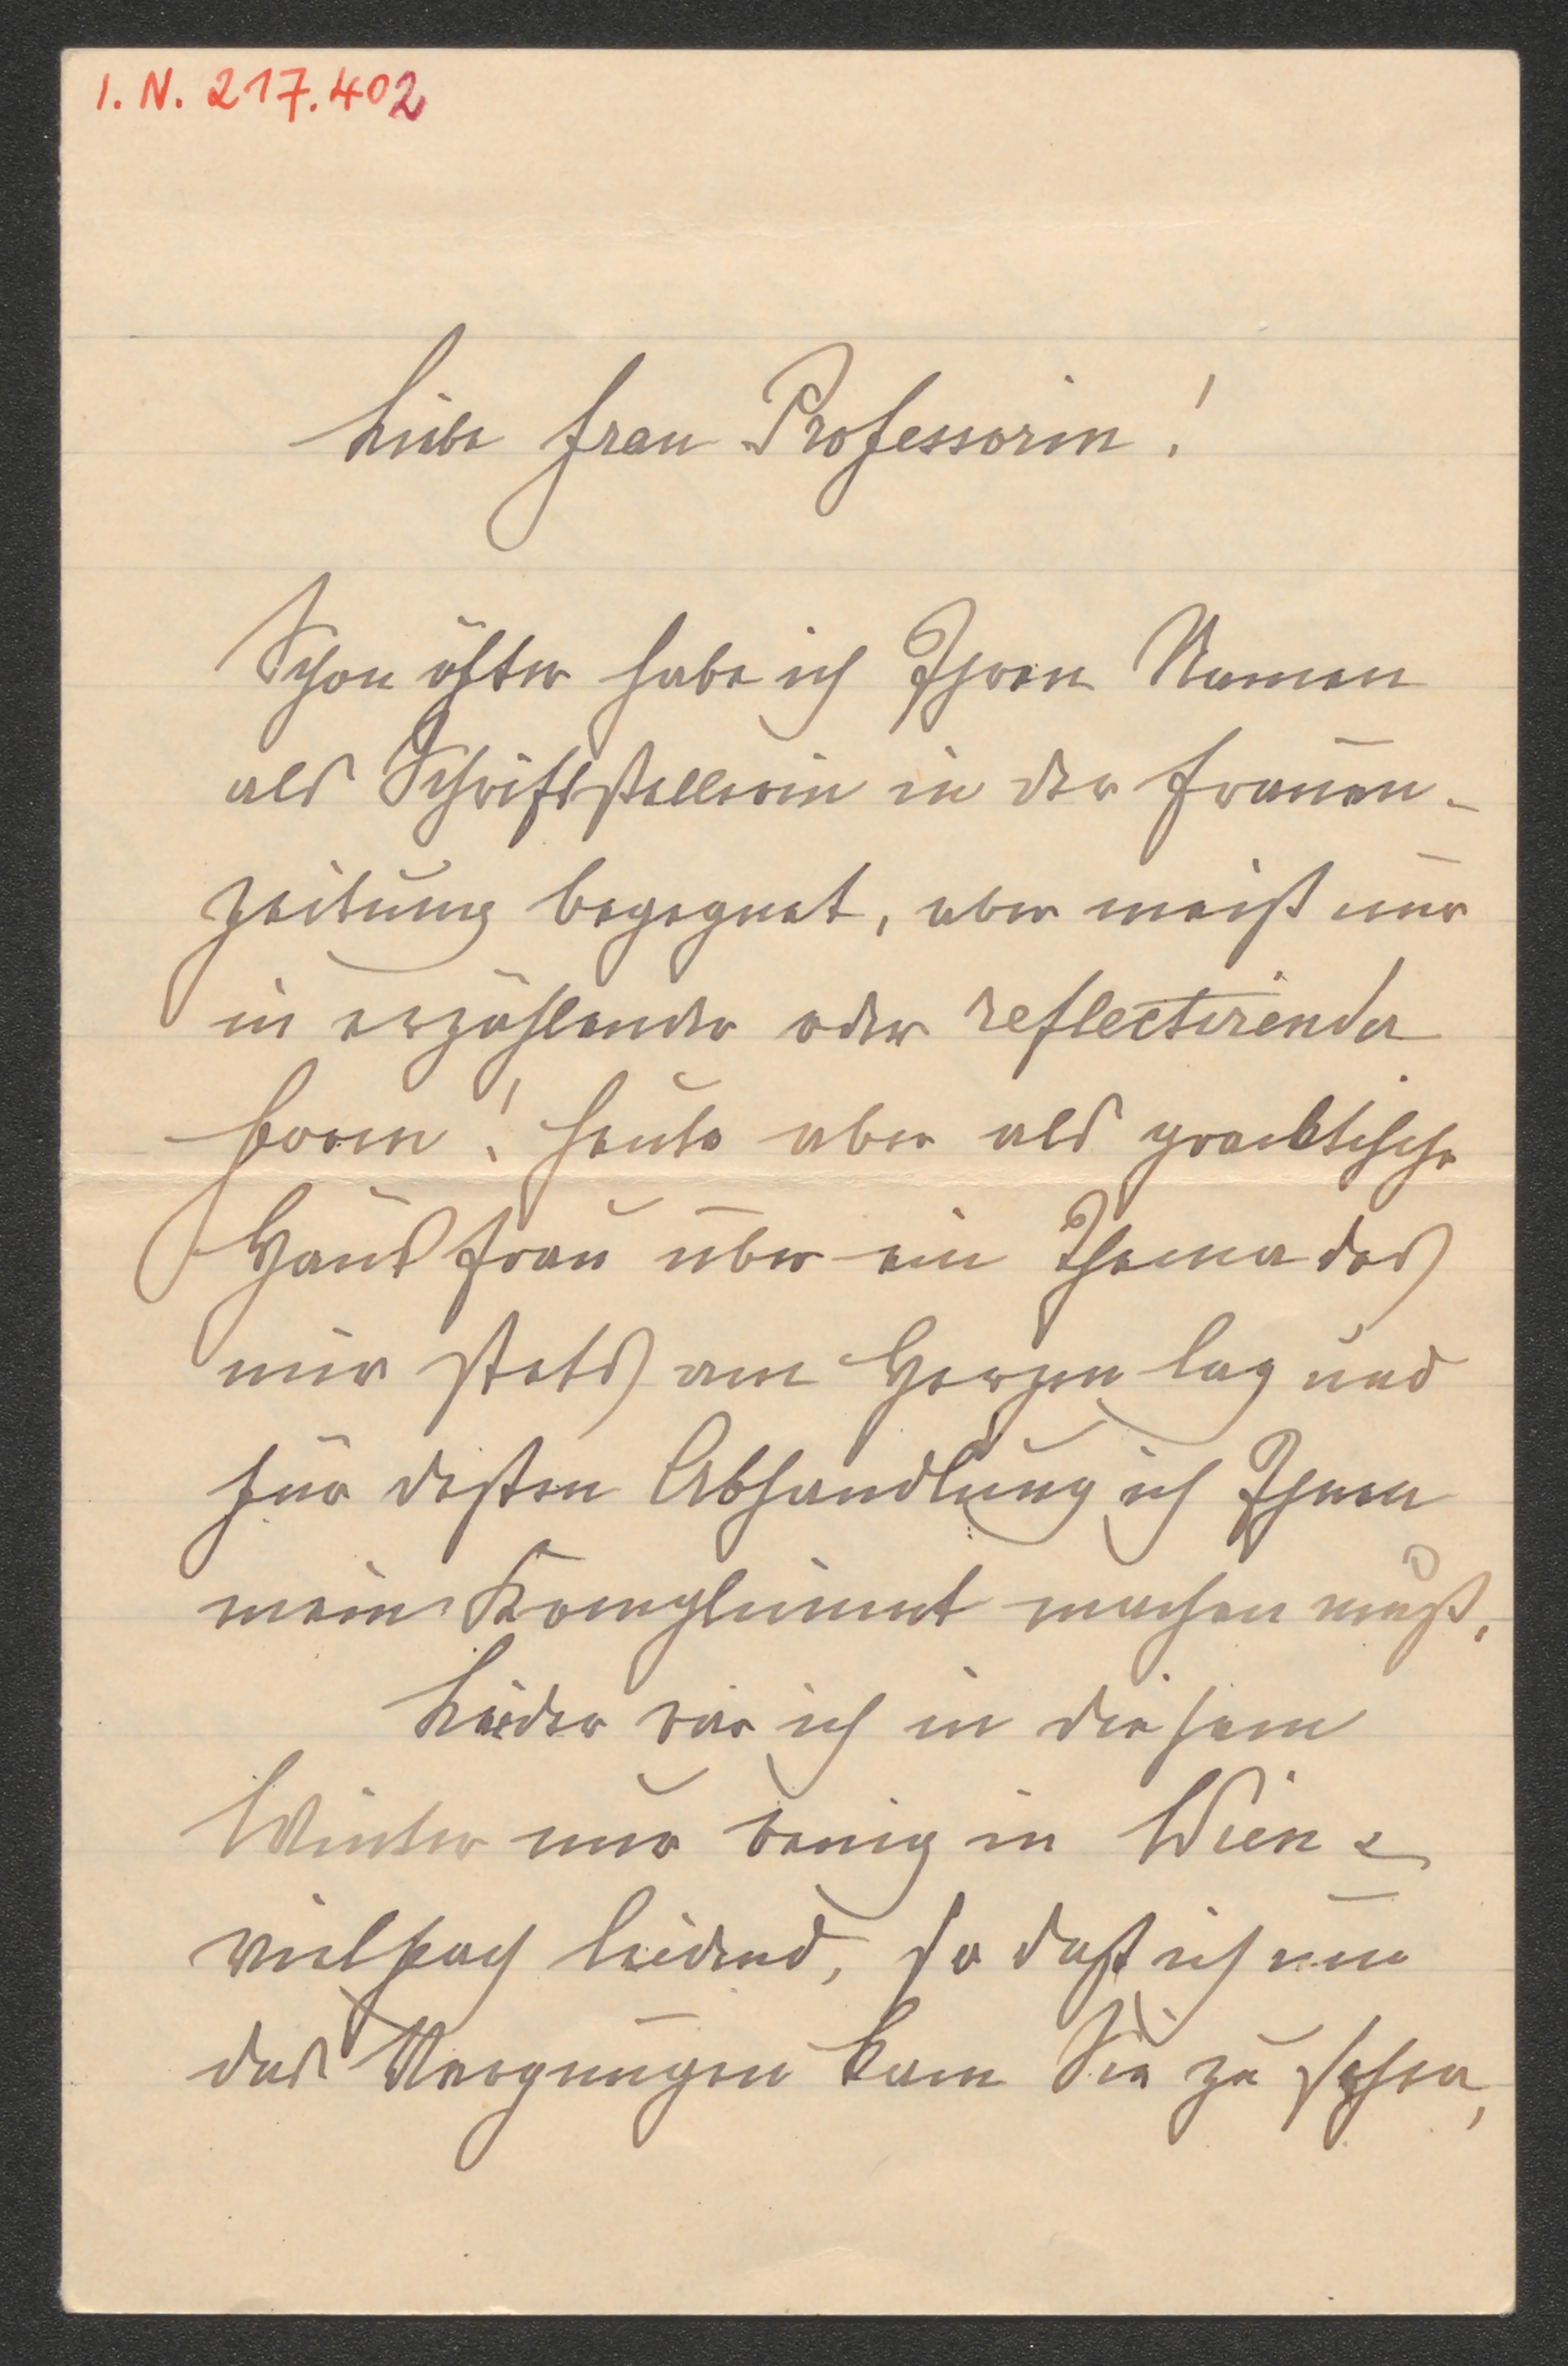 I. N. 217.402
Liebe Frau Professorin!
Schon öfter habe ich Ihren Namen
als Schriftstellerin in der Frauen-
zeitung begegnet, aber meist nur
in erzählender oder reflectirender
Form! heute aber als practische
Hausfrau über ein Thema das
mir stets am Herzen lag und
für dessen Abhandlung ich Ihnen
mein Kompliment machen muß.
Leider war ich in diesem
Winter nur wenig in Wien &
vielfach leidend, so daß ich um
das Vergnügen kam Sie zu sehen,